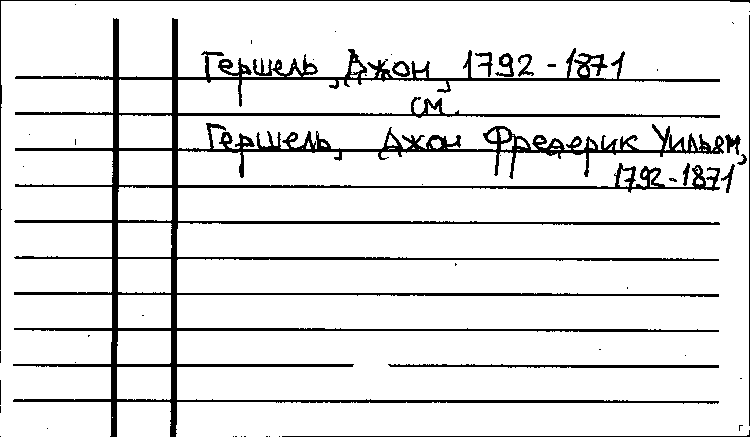 Гершель, Джон, 1792-1871
см.
Гершель, Джон Фредерик Уильям,
1792-1871